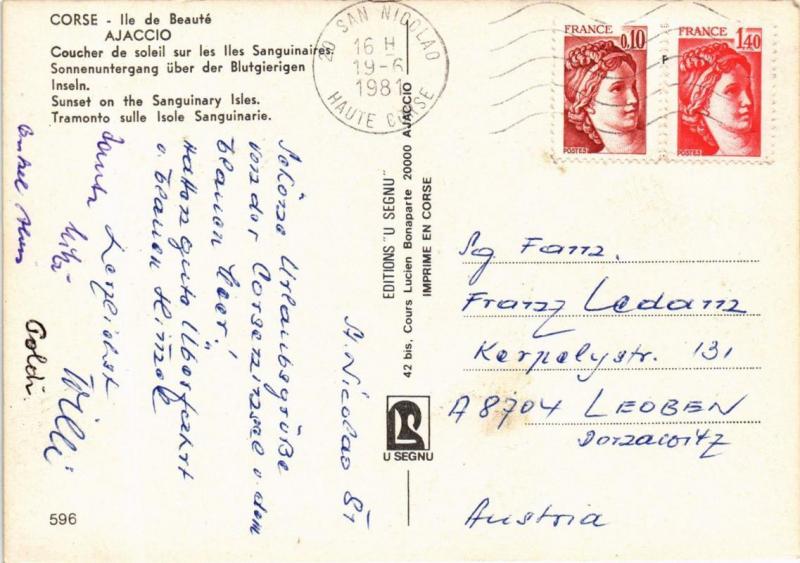 CORSE - Ile de Beauté
AJACCIO
Coucher de soleil sur les Iles Sanguinaires.
Sonnenuntergang über der Blutgierigen
Inseln.
Sunset on the Sanguinary Isles.
Tramonto sulle Isole Sanguinarie.
20 SAN NICOLAO
16 H
19-6
1981
HAUTE CORSE
FRANCE
0,10
POSTES
FRANCE
1,40
POSTES
St. Nicolao 81
Schöne Urlaubsgrüße
von der Corseninsel u. dem
blauen Meer!
Hatten gute Überfahrt
u. blauen Himmel
Herzlichst
Willi
Tante
Poldi
EDITIONS "U SEGNU"
42 bis, Cours Lucien Bonaparte 20000 AJACCIO
IMPRIME EN CORSE
U SEGNU
Fam.
Franz Ledanz
Kerpelystr. 131
A 8704 LEOBEN
Donawitz
Austria
596